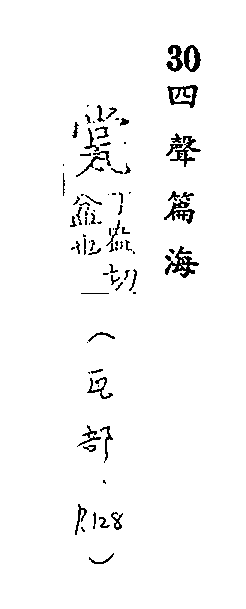 30四聲篇海
瓽丁盎切盆也（瓦部．P.128）